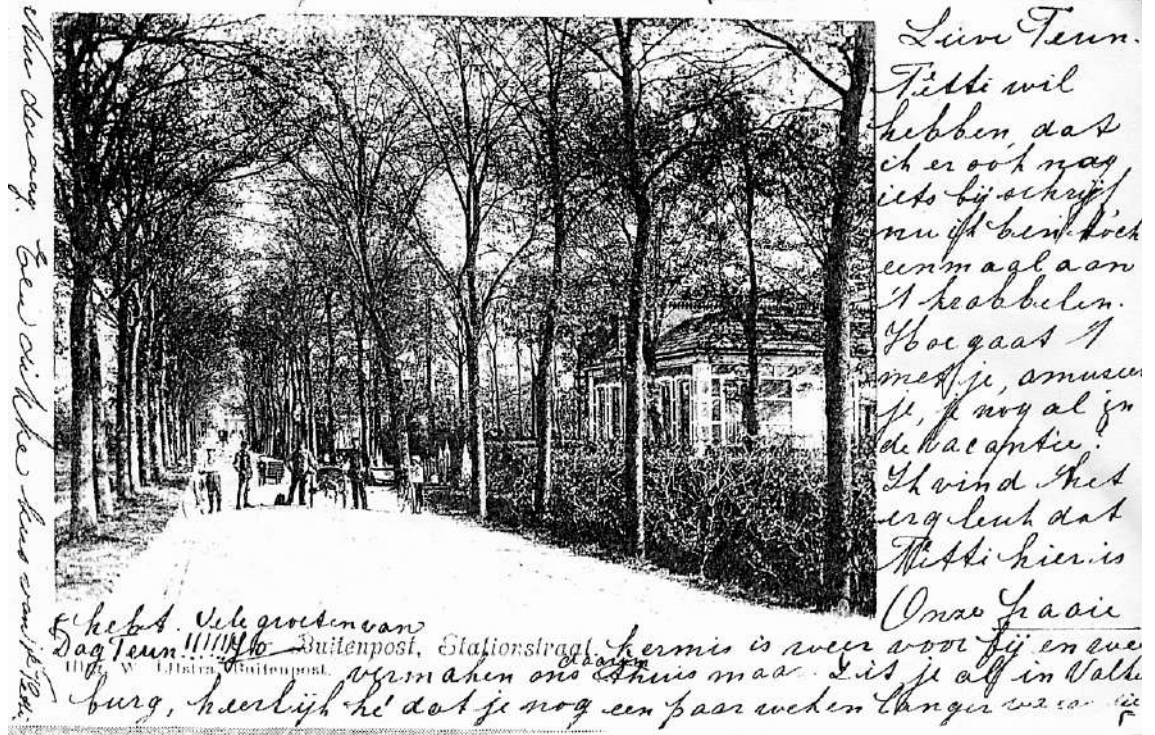 Lieve Teun.
Tetti wil
hebben, dat
ik er ook nog
iets bij schrijf
nu ik ben toch
eenmaal aan
't krabbelen.
Hoe gaat 't
met je, amuseer
je, je nog al in
de vacantie?
Ik vind het
erg leuk dat
Tetti hier is
Onze fraaie
kermis is weer voor bij en we
vermaken ons daarom thuis maar. Zit je al in Valken
burg, heerlijk hé dat je nog een paar weken langer
hebt. Vele groeten van
Dag Teun!!!!!! Jo
Buitenpost, Stationstraat.
Uitg. W. IJlstra, Buitenpost.
Een dikke kus van je Tetti.